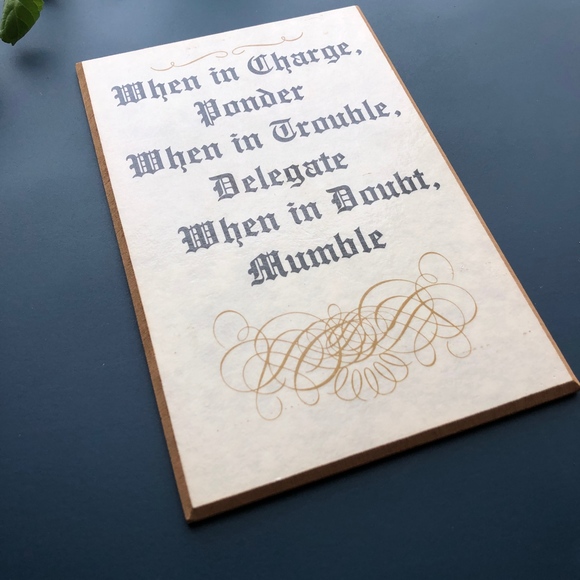 When in Charge,
Ponder
When in Trouble,
Delegate
When in Doubt,
Mumble